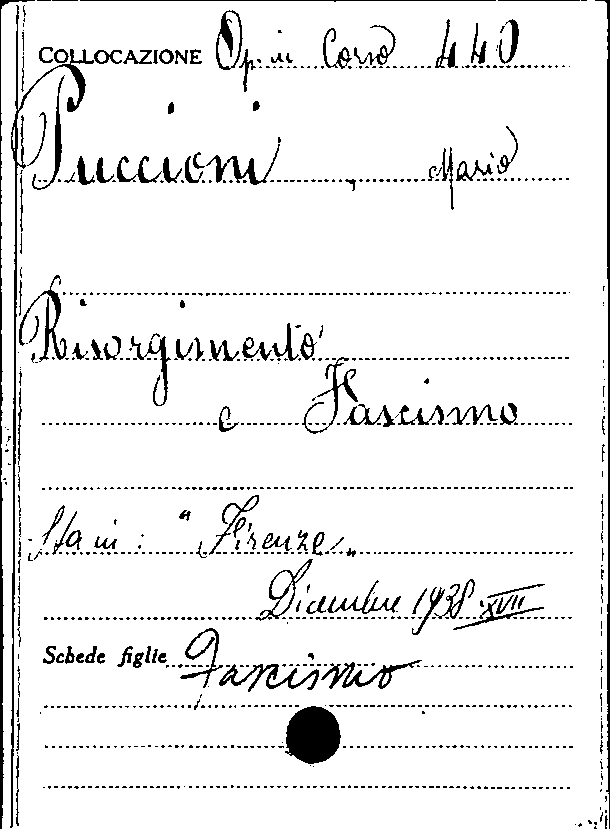 COLLOCAZIONE Op. in Corso 440
Puccioni, Mario
Risorgimento
e Fascismo
Sta in: "Firenze„
Dicembre 1938 XVII
Schede figlie Fascismo